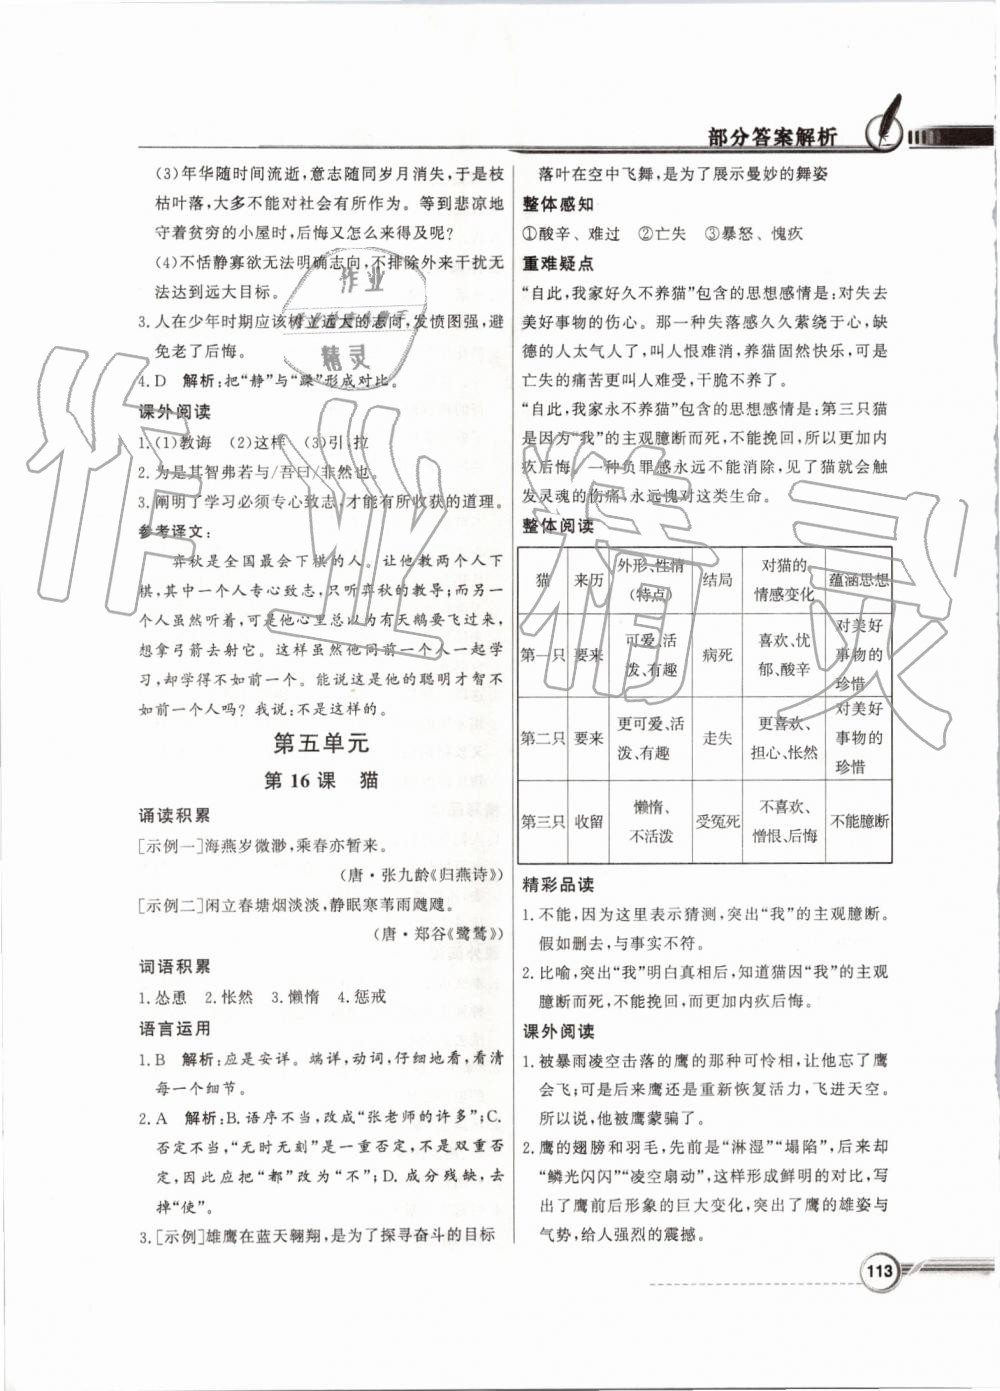 部分答案解析
(3)年华随时间流逝,意志随同岁月消失,于是枝
枯叶落,大多不能对社会有所作为。等到悲凉地
守着贫穷的小屋时,后悔又怎么来得及呢?
(4)不恬静寡欲无法明确志向,不排除外来干扰无
法达到远大目标。
3.人在少年时期应该树立远大的志向,发愤图强,避
免老了后悔。
4.D 解析:把“静”与“躁”形成对比。
课外阅读
1.(1)教诲 (2)这样 (3)引,拉
2.为是其智弗若与/吾曰/非然也。
3.阐明了学习必须专心致志,才能有所收获的道理。
参考译文:
弈秋是全国最会下棋的人。让他教两个人下
棋,其中一个人专心致志,只听弈秋的教导;而另一
个人虽然听着,可是他心里总以为有天鹅要飞过来,
想拿弓箭去射它。这样虽然他同前一个人一起学
习,却学得不如前一个。能说这是他的聪明才智不
如前一个人吗?我说:不是这样的。
第五单元
第16课 猫
诵读积累
[示例一]海燕岁微渺,乘春亦暂来。
(唐·张九龄《归燕诗》)
[示例二]闲立春塘烟淡淡,静眠寒苇雨飕飕。
(唐·郑谷《鹭鸶》)
词语积累
1.怂恿 2.怅然 3.懒惰 4.惩戒
语言运用
1.B 解析:应是安详。端详,动词,仔细地看,看清
每一个细节。
2.A 解析:B.语序不当,改成“张老师的许多”;C.
否定不当,“无时无刻”是一重否定,不是双重否
定,因此应把“都”改为“不”;D.成分残缺,去
掉“使”。
3.[示例]雄鹰在蓝天翱翔,是为了探寻奋斗的目标
落叶在空中飞舞,是为了展示曼妙的舞姿
整体感知
①酸辛、难过 ②亡失 ③暴怒、愧疚
重难疑点
“自此,我家好久不养猫”包含的思想感情是:对失去
美好事物的伤心。那样的失落感久久萦绕于心,缺
德的人太气人了,叫人恨难消,养猫固然快乐,可是
亡失的痛苦更叫人难受,干脆不养了。
“自此,我家永不养猫”包含的思想感情是:第三只猫
是因为“我”的主观臆断而死,不能挽回,所以更加内
疚后悔,一种负罪感永远不能消除,见了猫就会触
发灵魂的伤痛,永远愧对这类生命。
整体阅读
猫 来历 外形、性情(特点) 结局 对猫的情感变化 蕴涵思想
第一只 要来 可爱、活泼、有趣 病死 喜欢、忧郁、酸辛 对美好事物的珍惜
第二只 要来 更可爱、活泼、有趣 走失 更喜欢、担心、怅然 对美好事物的珍惜
第三只 收留 懒惰、不活泼 受冤死 不喜欢、憎恨、后悔 不能臆断
精彩品读
1.不能,因为这里表示猜测,突出“我”的主观臆断。
假如删去,与事实不符。
2.比喻,突出“我”明白真相后,知道猫因“我”的主观
臆断而死,不能挽回,而更加内疚后悔。
课外阅读
1.被暴雨凌空击落的鹰的那种可怜相,让他忘了鹰
会飞;可是后来鹰还是重新恢复活力,飞进天空。
所以说,他被鹰蒙骗了。
2.鹰的翅膀和羽毛,先前是“淋湿”“塌陷”,后来却
“鳞光闪闪”“凌空扇动”,这样形成鲜明的对比,写
出了鹰前后形象的巨大变化,突出了鹰的雄姿与
气势,给人强烈的震撼。
113
作业
精灵
作业精灵